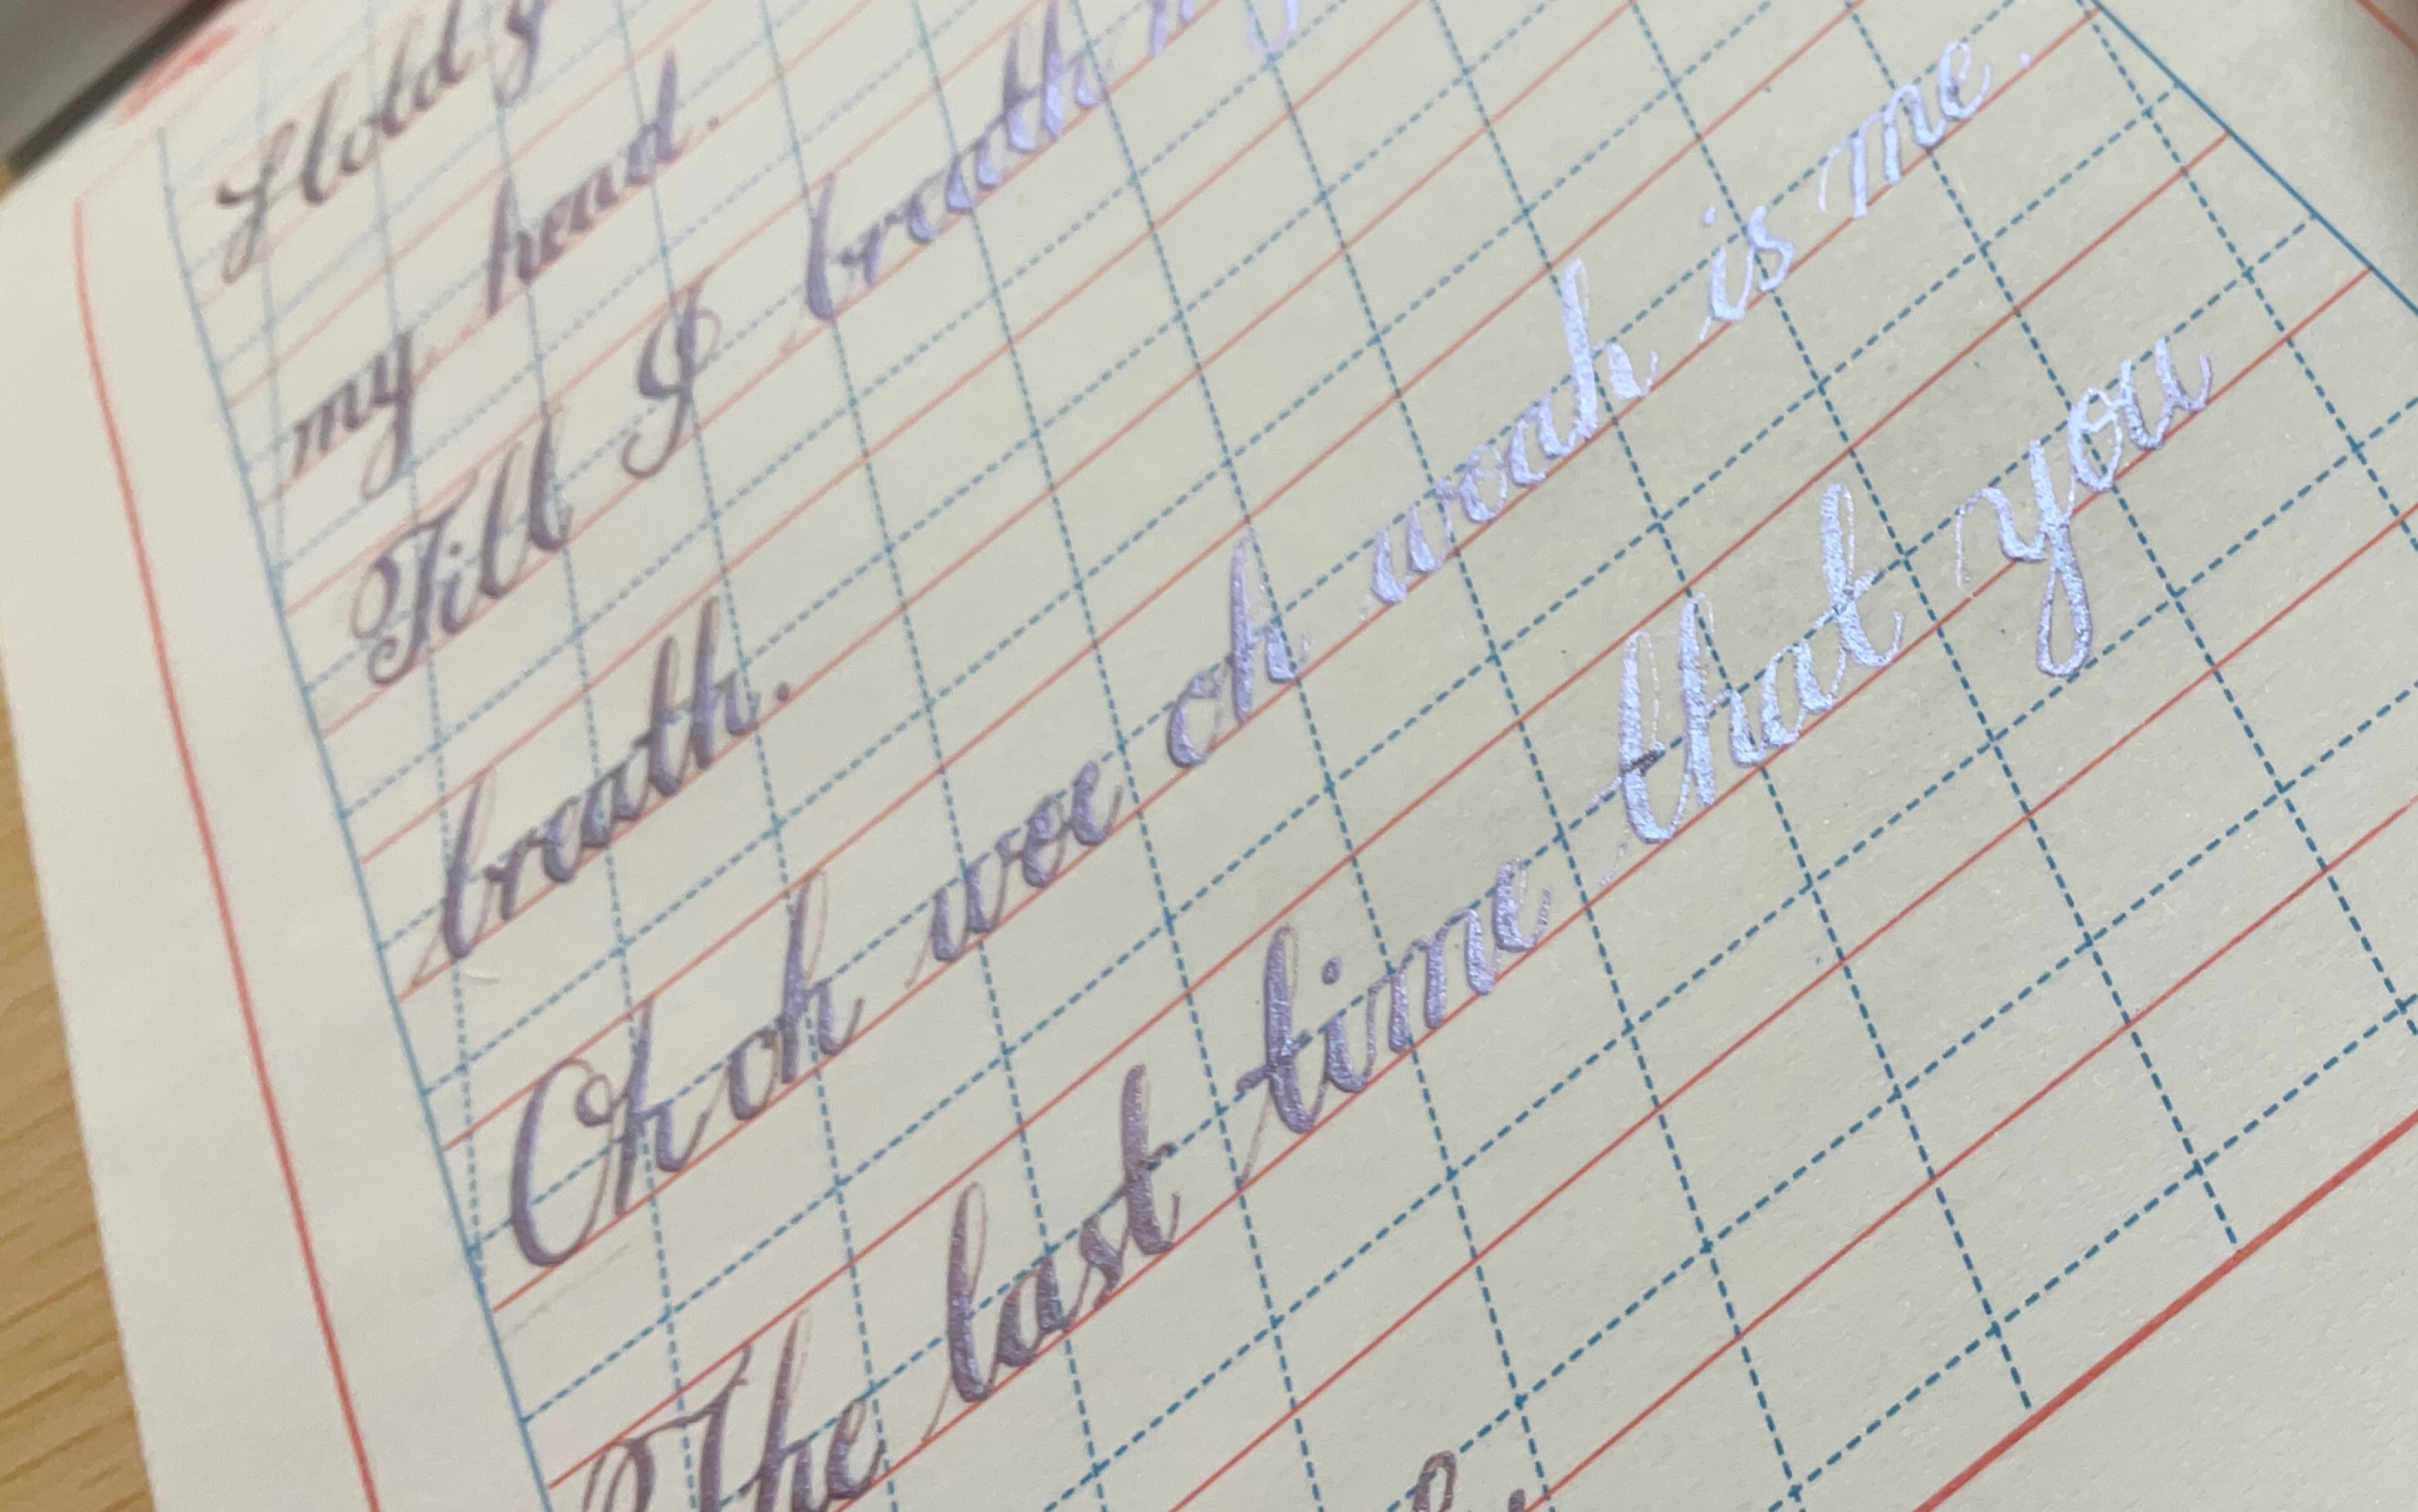 Hold
my head.
Till I breath my
breath.
Oh oh woe oh woah is me.
The last time that you